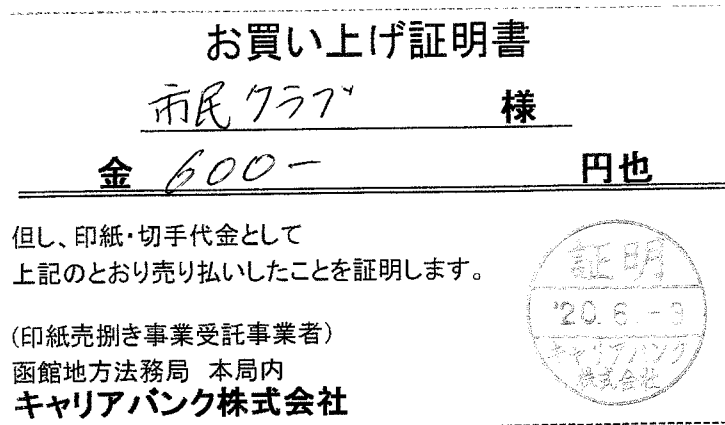 お買い上げ証明書
市民クラブ 様
金 600- 円也
但し、印紙・切手代金として
上記のとおり売り払いしたことを証明します。
(印紙売捌き事業受託事業者)
函館地方法務局 本局内
キャリアバンク株式会社
証明
'20.6.-9
キャリアバンク
株式会社